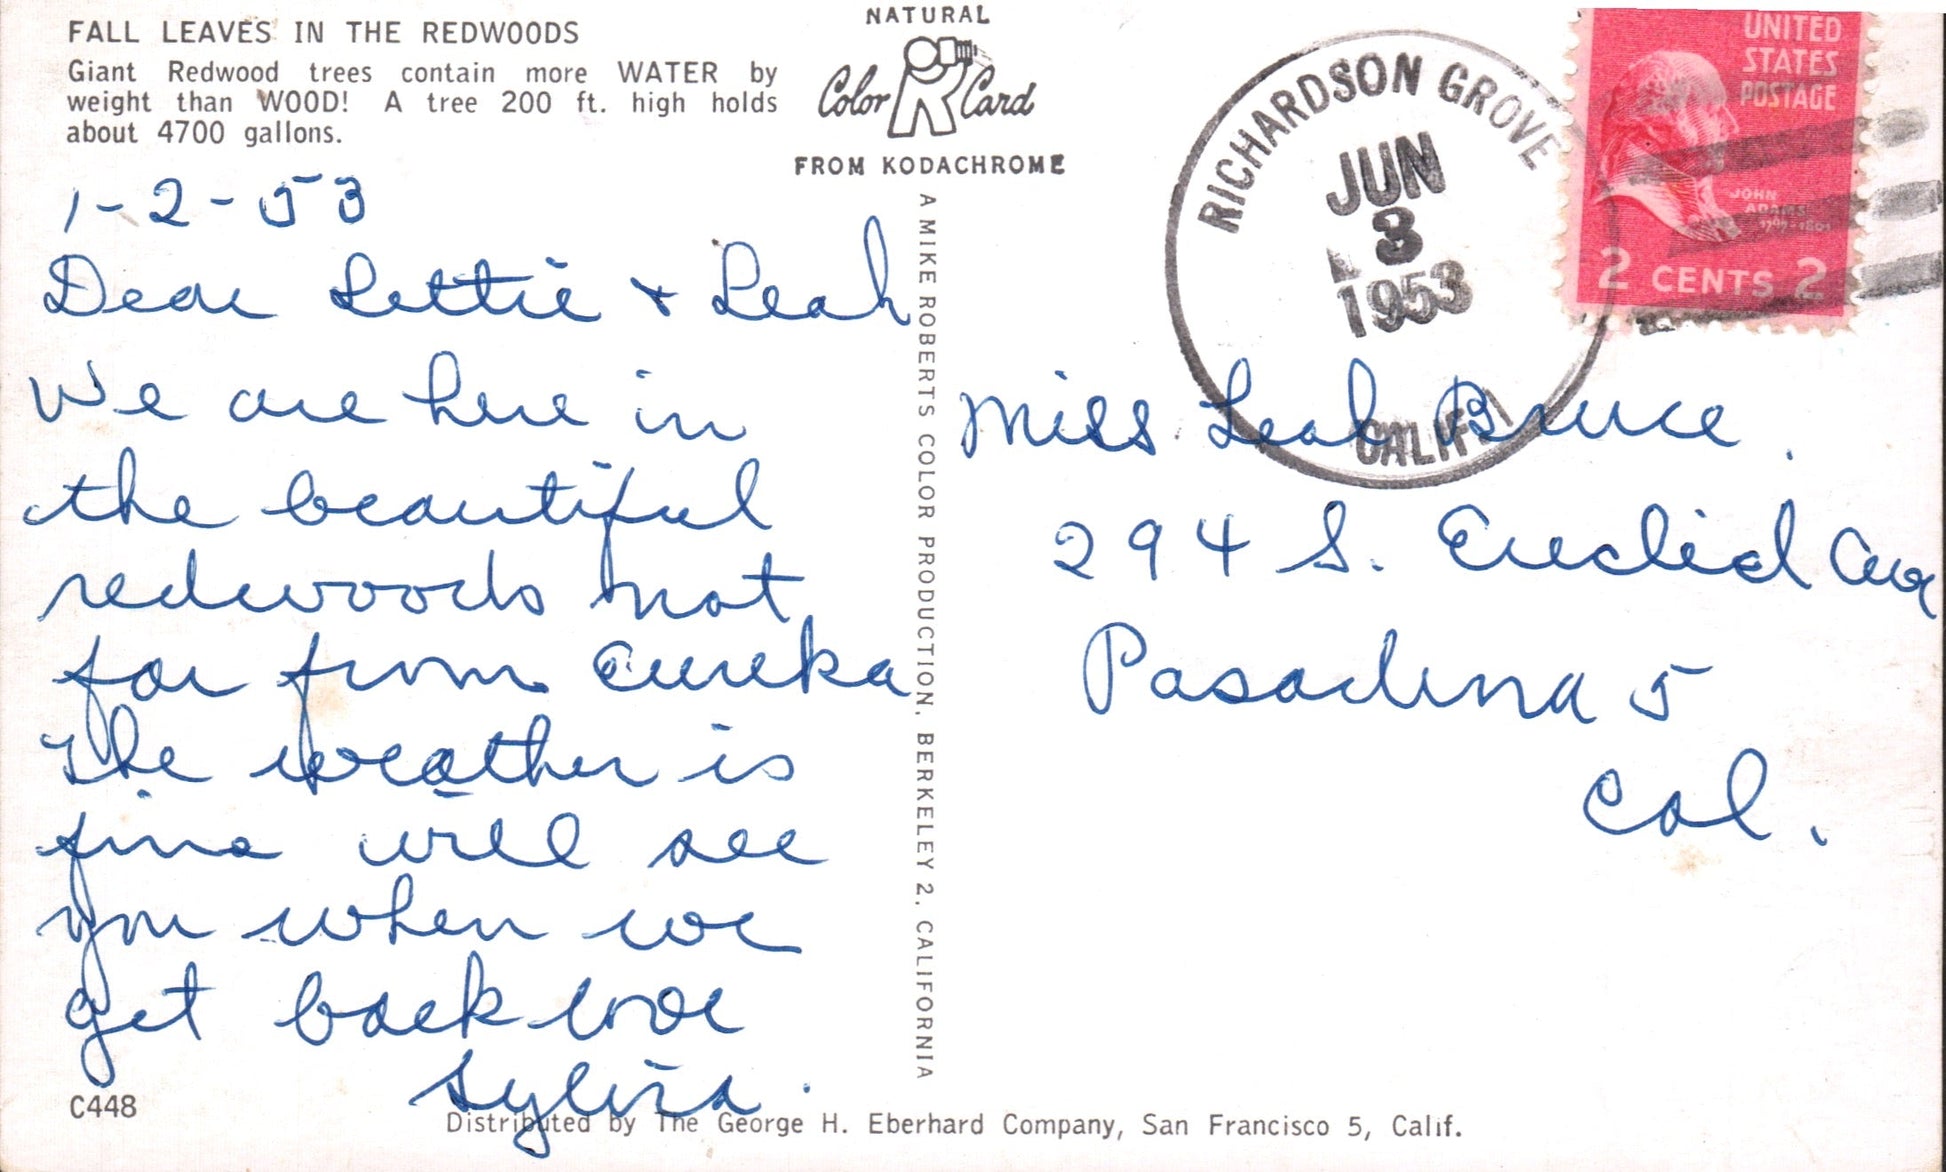 FALL LEAVES IN THE REDWOODS
Giant Redwood trees contain more WATER by
weight than WOOD! A tree 200 ft. high holds
about 4700 gallons.
NATURAL
Color Card
FROM KODACHROME
RICHARDSON GROVE
JUN
3
1953
CALIF.
UNITED
STATES
POSTAGE
JOHN
ADAMS
1797-1801
2 CENTS 2
1-2-53
Dear Lettie + Leah
We are here in
the beautiful
redwoods not
far from Eureka
The weather is
fine will see
you when we
get back love
Sylvia.
A MIKE ROBERTS COLOR PRODUCTION, BERKELEY 2, CALIFORNIA
Miss Leah Bruce.
294 S. Euclid Ave
Pasadena 5
Cal.
C448
Distributed by The George H. Eberhard Company, San Francisco 5, Calif.